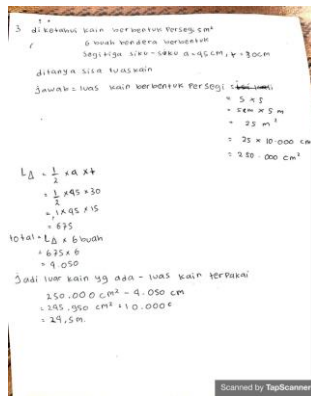 3 diketahui kain berbentuk Persegi 5m²
6 buah bendera berbentuk
segitiga siku-siku a=45cm, t=30cm
ditanya sisa luas kain
Jawab = luas kain berbentuk Persegi
= 5 x 5
= 5cm x 5 m
= 25 m²
= 25 x 10.000 cm
= 250.000 cm²
L△ = 1/2 x a x t
= 1/2 x 45 x 30
= 1 x 45 x 15
= 675
total = L△ x 6 buah
= 675 x 6
= 4.050
Jadi luar kain yg ada - luas kain terpakai
250.000 cm² - 4.050 cm
= 245.950 cm² : 10.000
= 24,5m.
Scanned by TapScanner